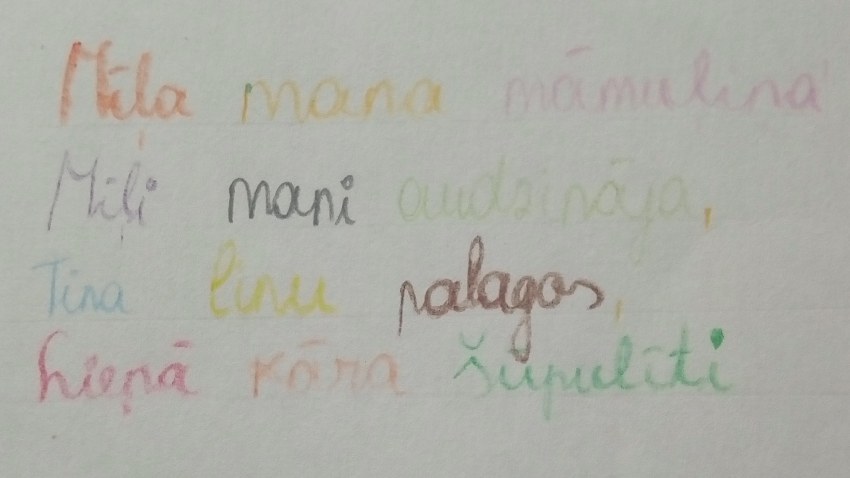 Mīļa mana māmulina
Mīļi mani audzināja,
Tina linu palagos,
Liepā kāra šūpulīti